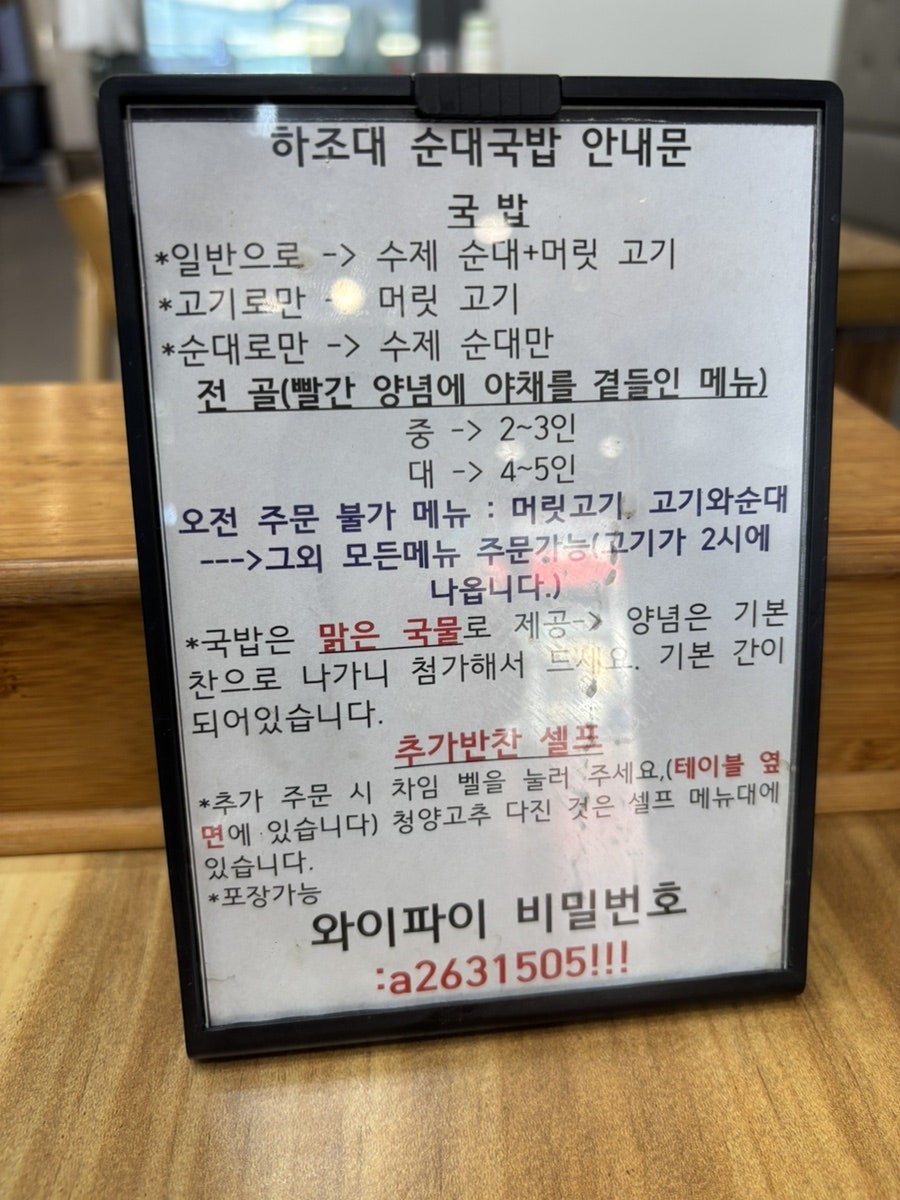 하조대 순대국밥 안내문
국 밥
*일반으로 -> 수제 순대+머릿 고기
*고기로만 -> 머릿 고기
*순대로만 -> 수제 순대만
전 골(빨간 양념에 야채를 곁들인 메뉴)
중 -> 2~3인
대 -> 4~5인
오전 주문 불가 메뉴 : 머릿고기, 고기와순대
--->그외 모든메뉴 주문가능(고기가 2시에
나옵니다.)
*국밥은 맑은 국물로 제공-> 양념은 기본
찬으로 나가니 첨가해서 드세요. 기본 간이
되어있습니다.
추가반찬 셀프
*추가 주문 시 차임 벨을 눌러 주세요,(테이블 옆
면에 있습니다) 청양고추 다진 것은 셀프 메뉴대에
있습니다.
*포장가능
와이파이 비밀번호
:a2631505!!!